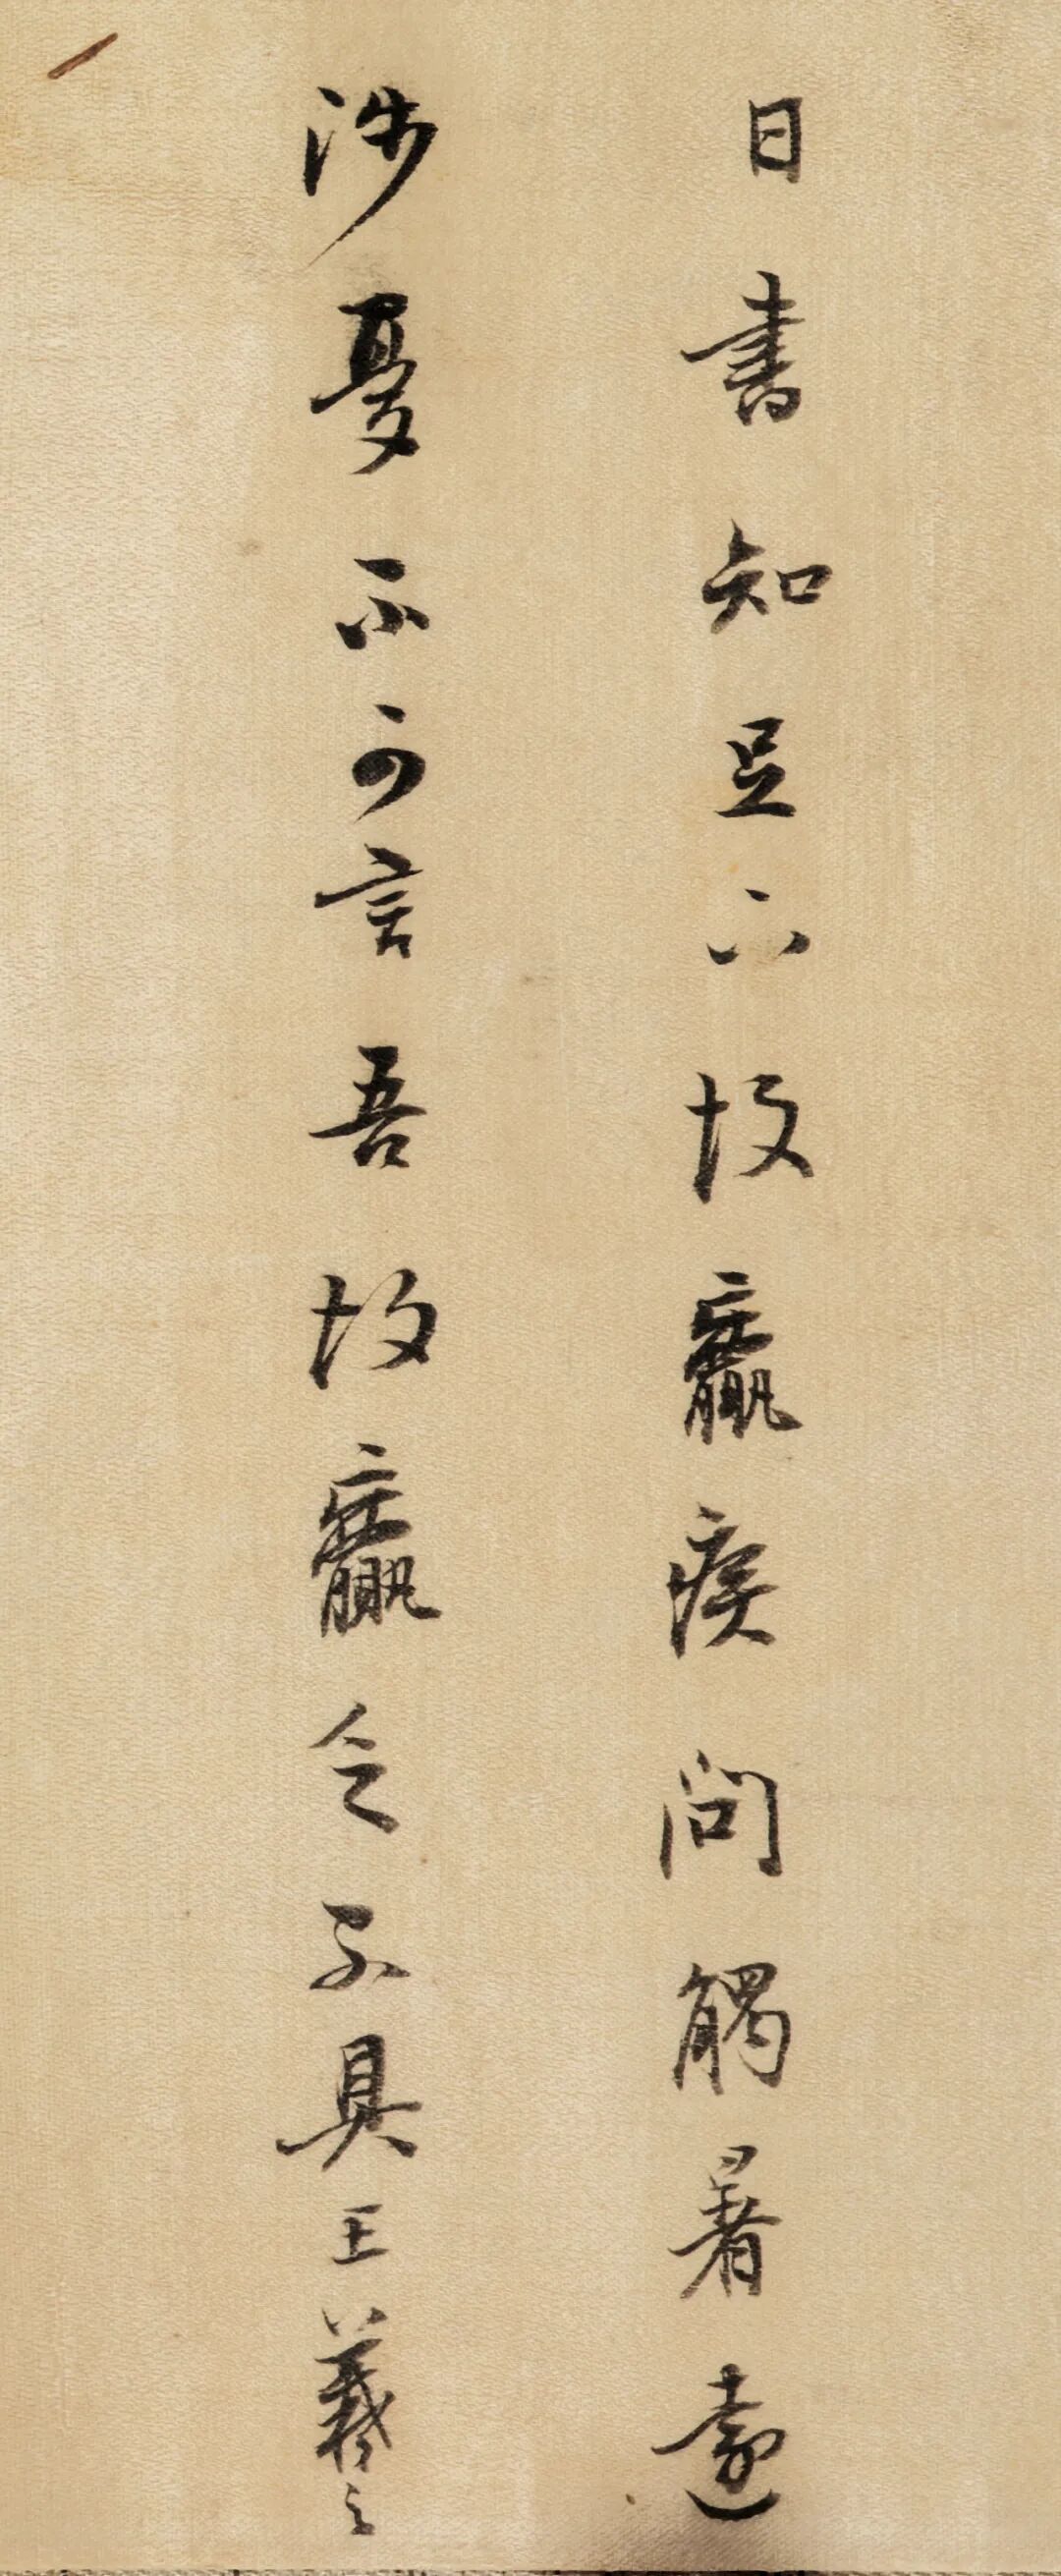 日書知足下故羸疾問觸暑遠
涉憂不可言吾故羸乏不具王羲之